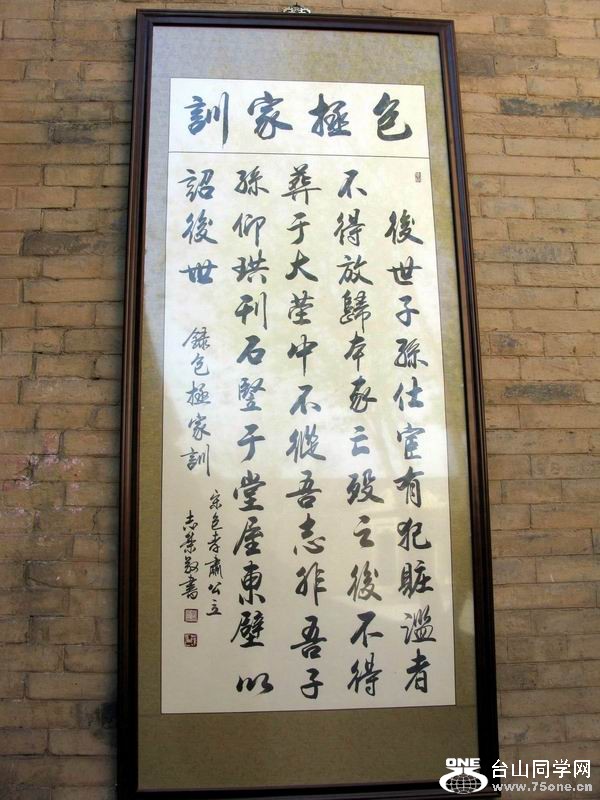 包拯家訓
後世子孫仕宦有犯賍濫者
不得放歸本家亡殁之後不得
葬于大茔中不從吾志非吾子
孫仰珙刊石竪于堂屋東壁以
詔後世
録包拯家訓
宋包孝肅公立
志榮敬書
ONE 台山同学网
www.75one.cn